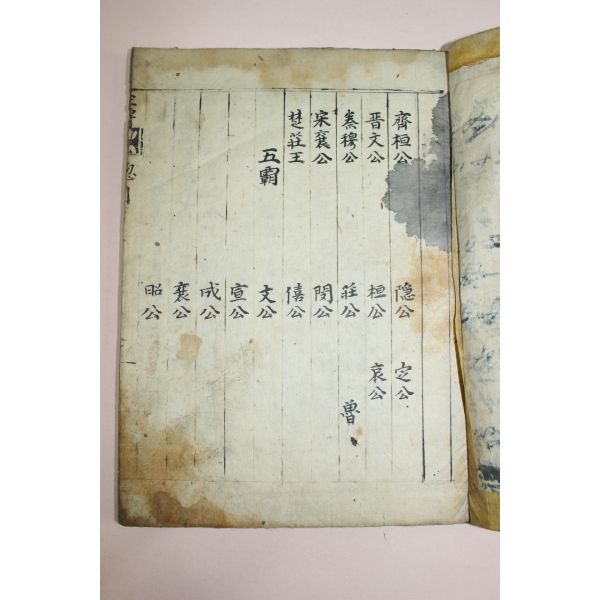 齊桓公
晋文公
秦穆公
宋襄公
楚莊王
五霸
隐公
桓公
莊公
閔公
僖公
文公
宣公
成公
襄公
昭公
定公
哀公
魯